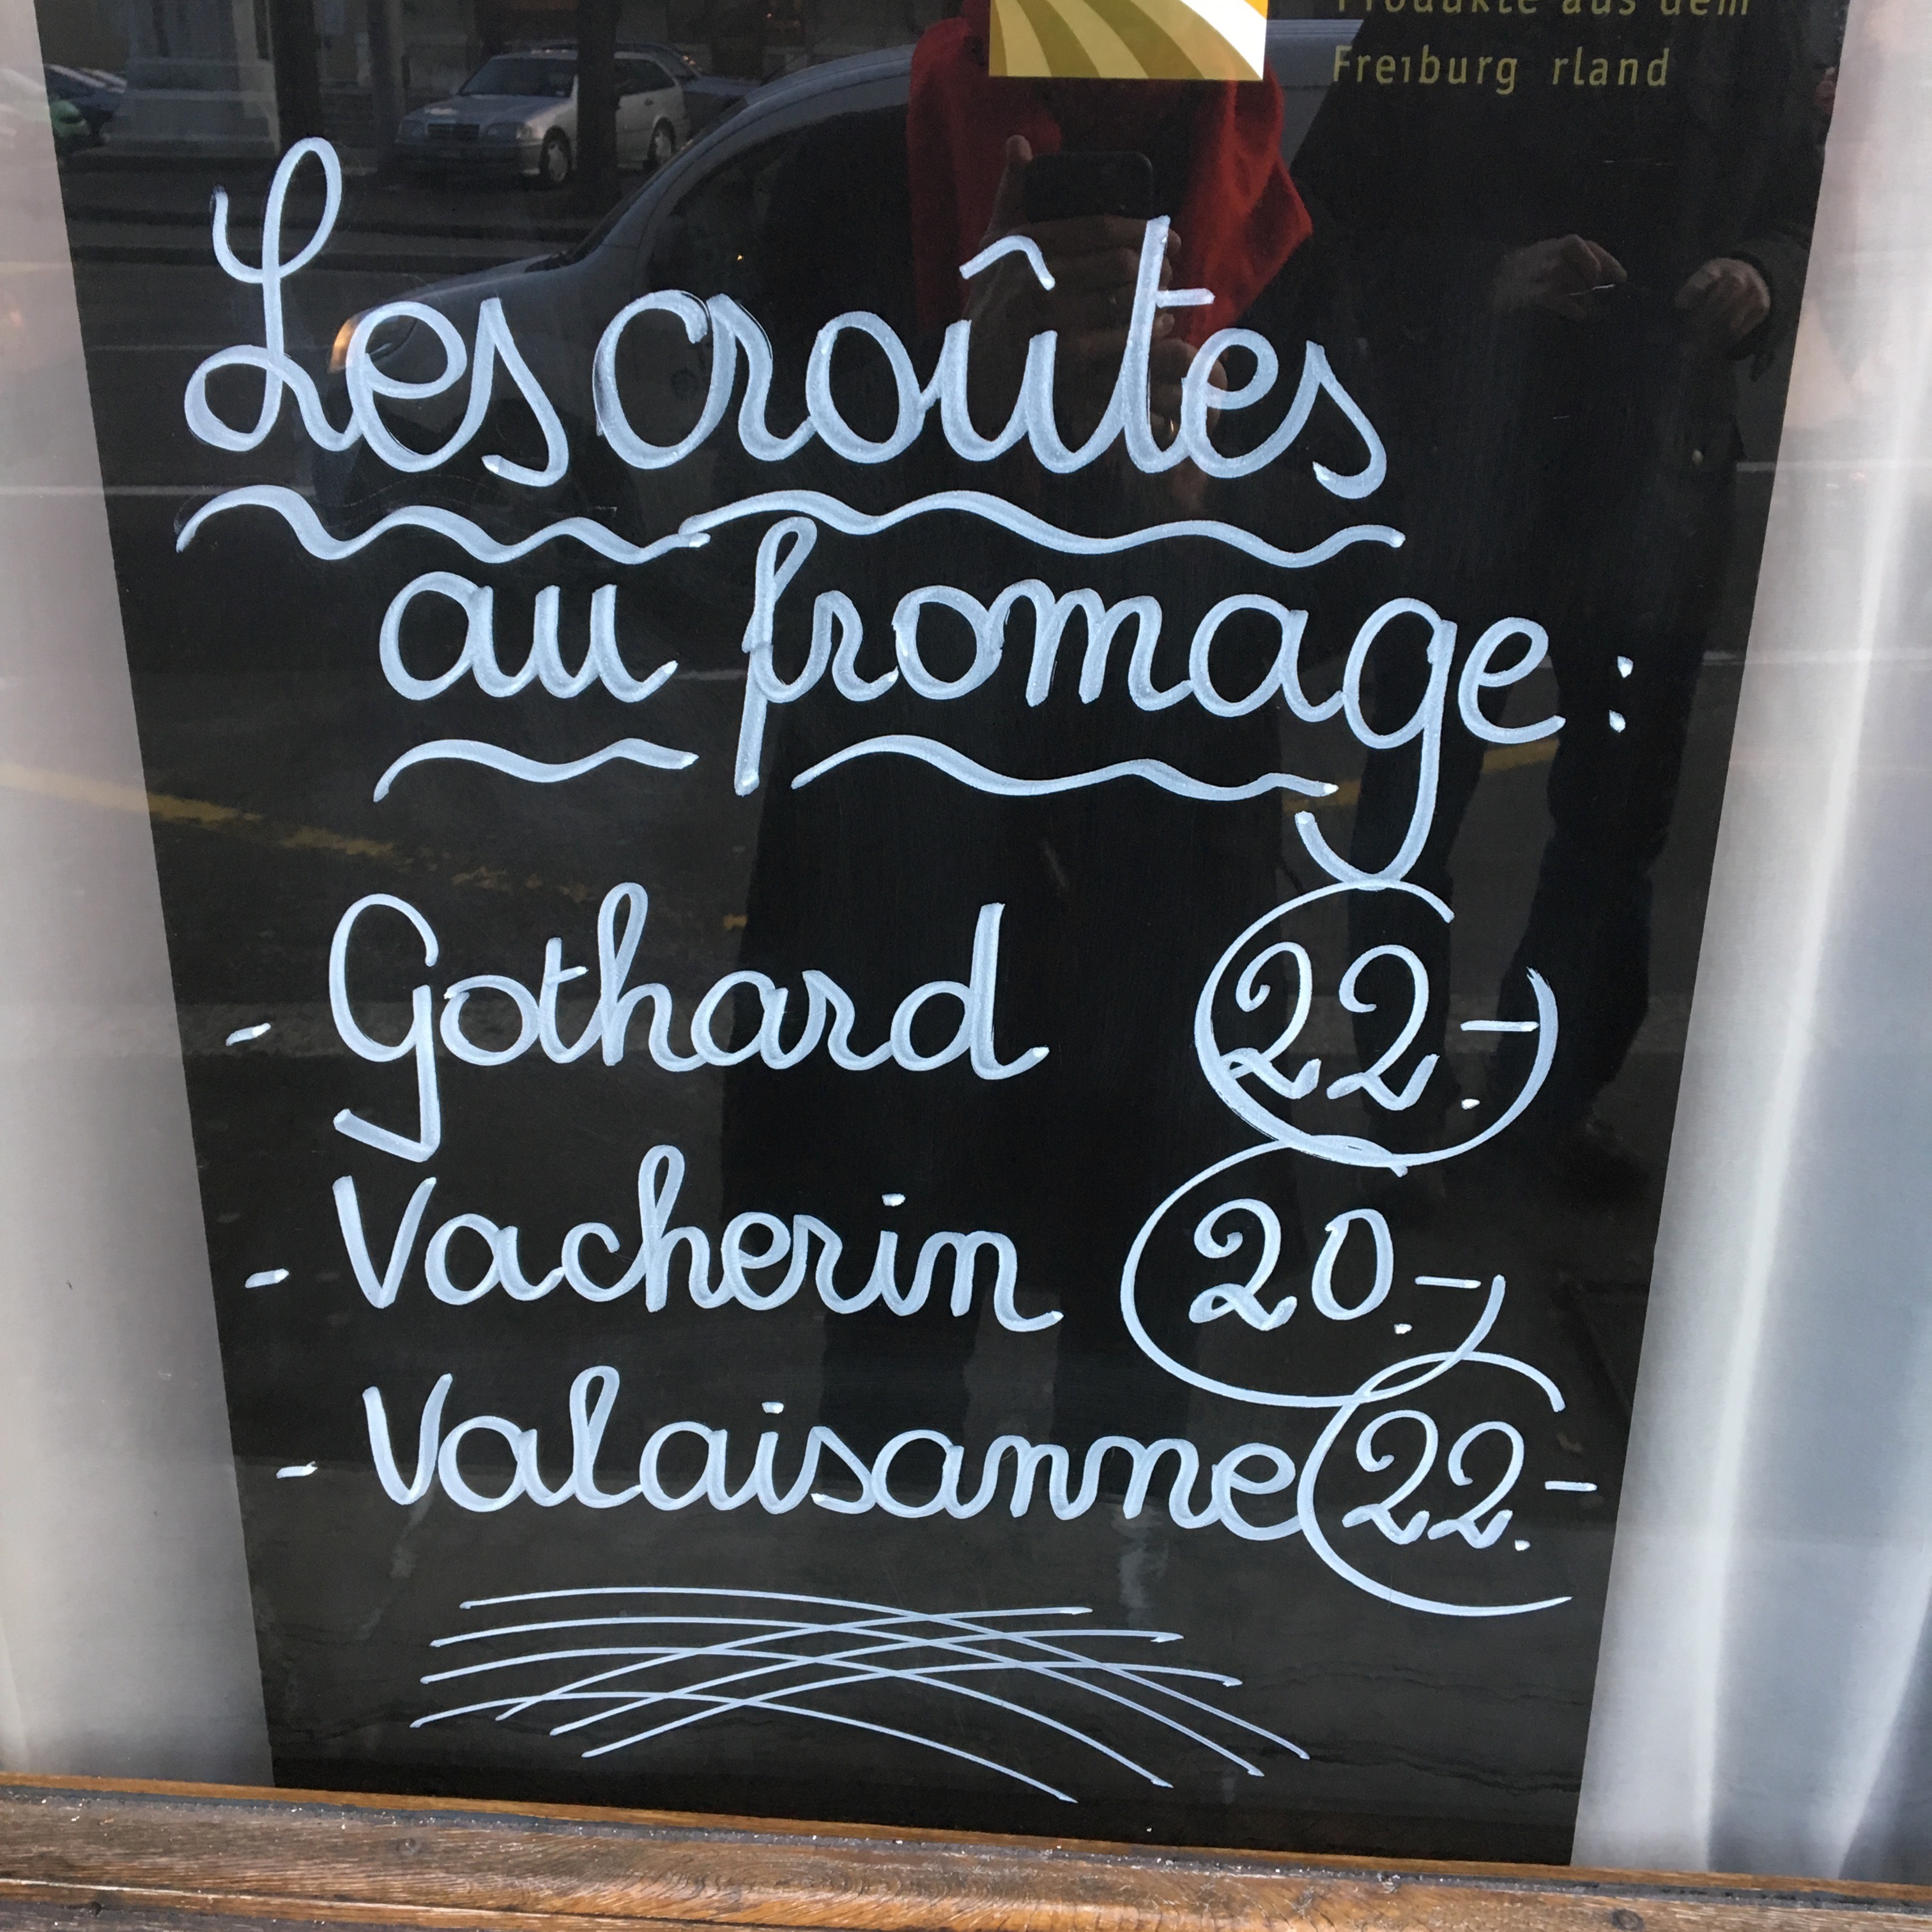 Produkte aus dem
Freiburg rland
Les croûtes
au fromage :
- Gothard 22.-
- Vacherin 20.-
- Valaisanne 22.-